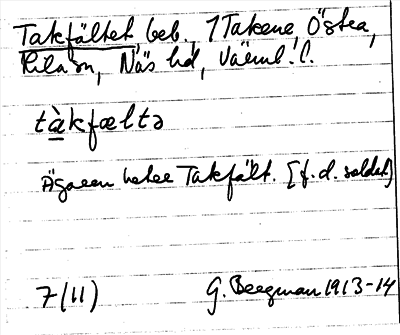 Takfältet, beb., 1 Takene, Östra,
Ny hd, Värml. l.
tàkfæltə
Ägaren heter Takfält. [f.d. soldat]
7(11) G. Bergman 1913-14